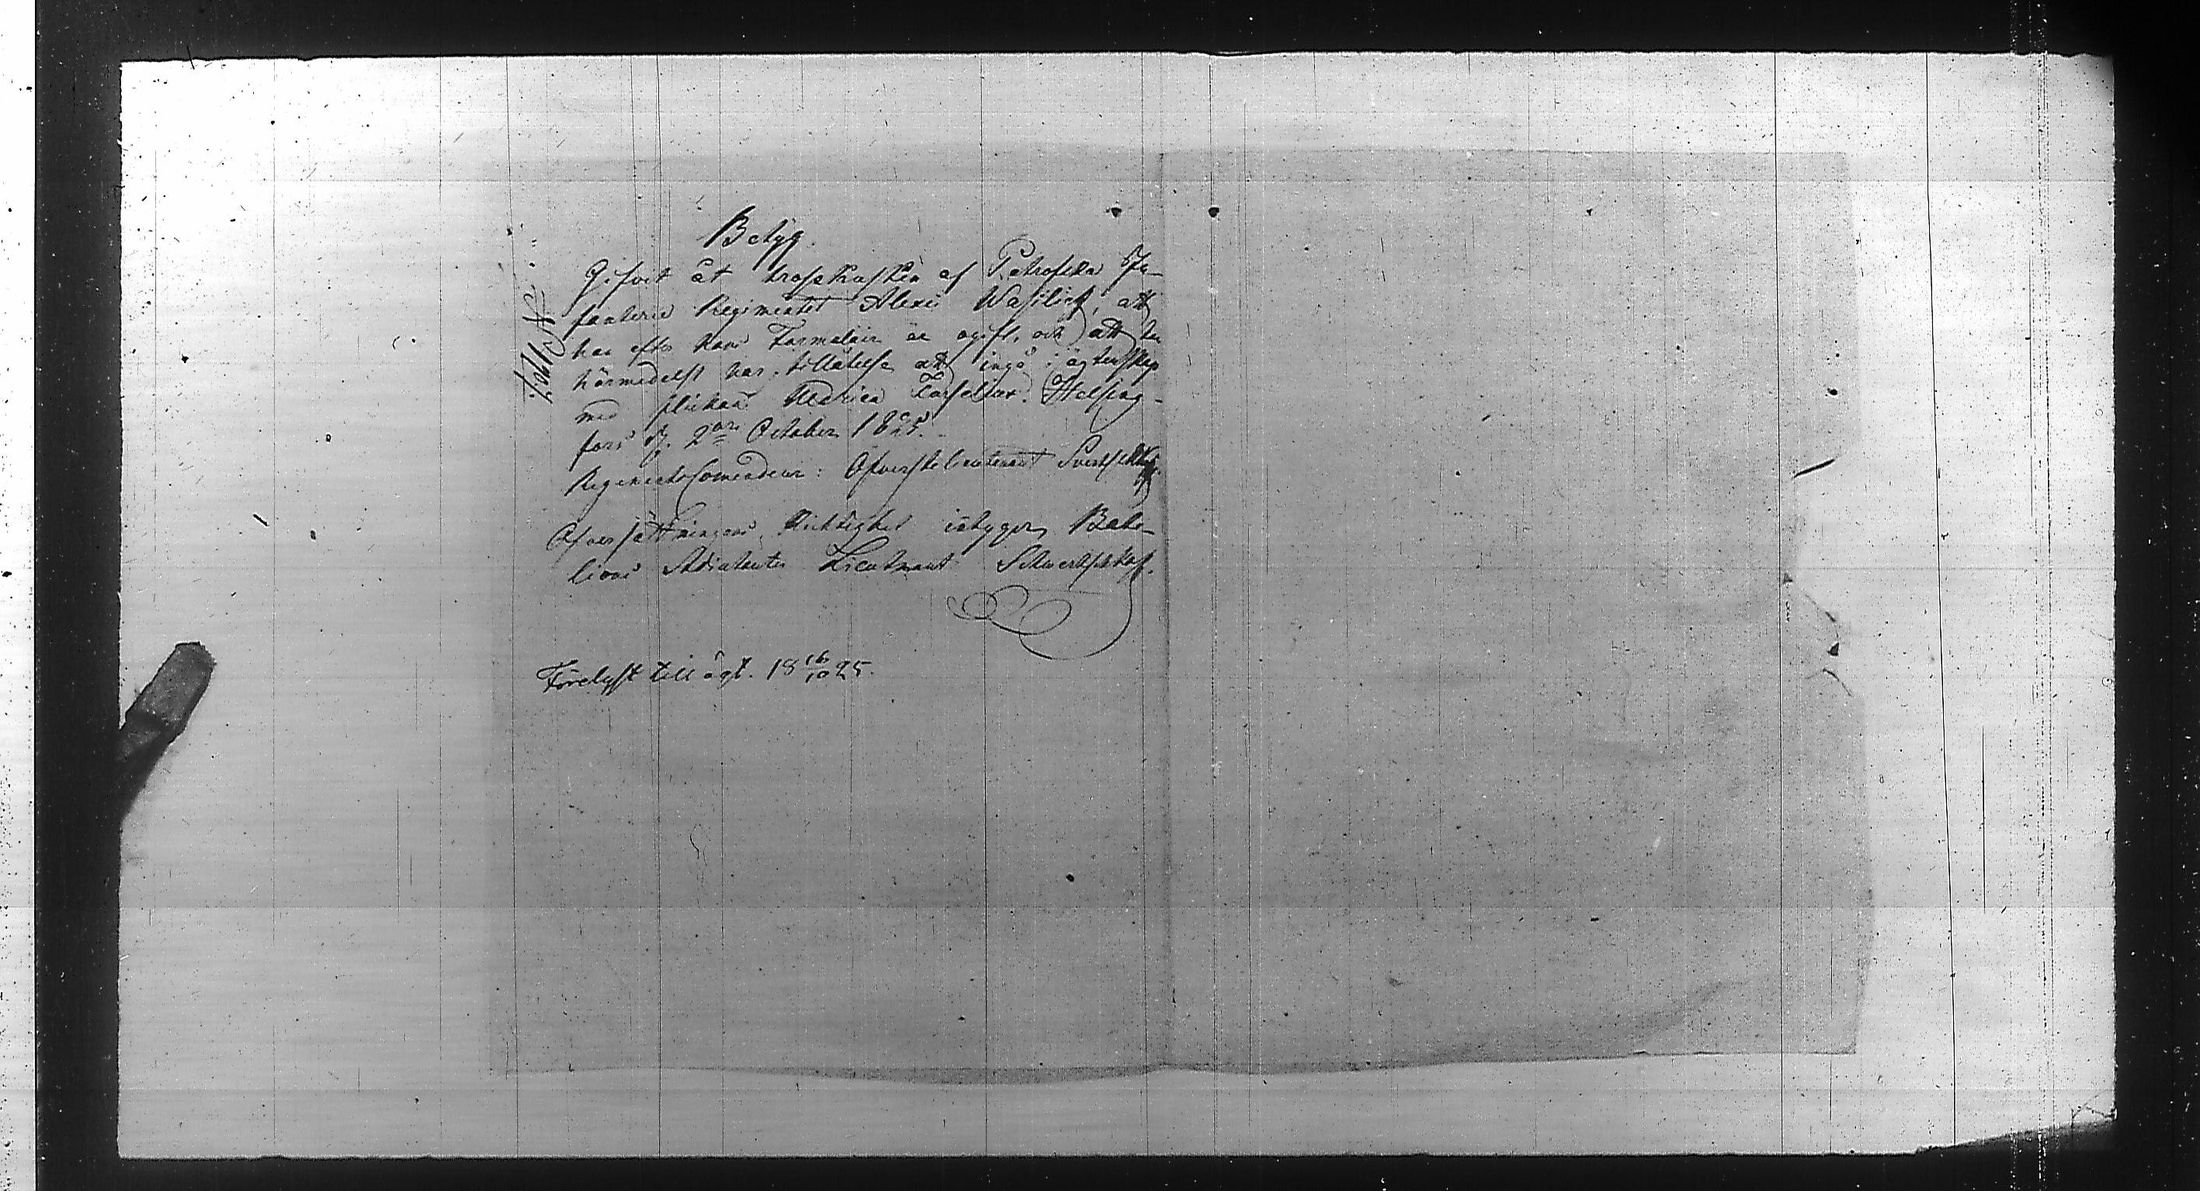 Betyg.
Gifvit åt trosskusken af Petrofska In-
fanterie Regimentet Alexei Wasilief, att
han efter Form är ogift, och att han
härmedelst har tillåtelse att ingå i ägtenskap
med flickan Maria Helsing-
fors d. 2dre October 1825.
Regements Comendeur: Öfverstelieutenant
Öfversättningens Ricktighet intygar, Bata-
lions Adiutanten Lieutnant
Förelyst till ägt. 18 16/10 25.